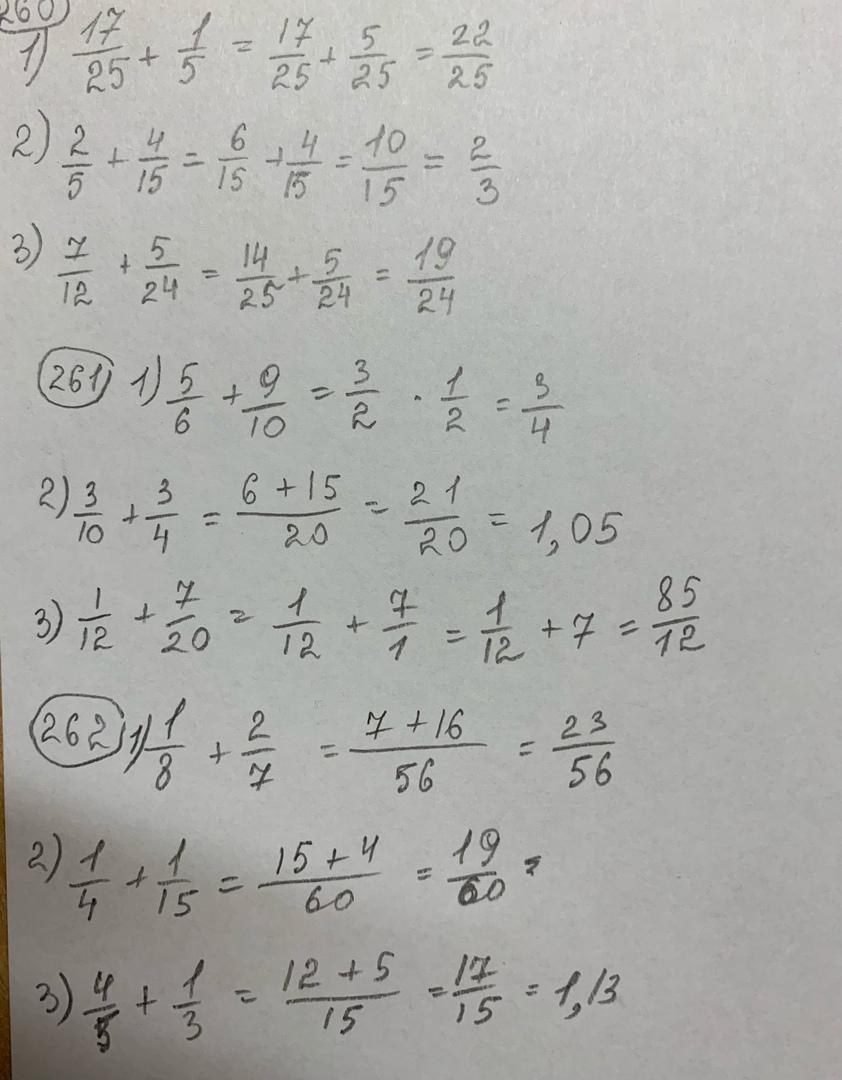 260
1) 17/25 + 1/5 = 17/25 + 5/25 = 22/25
2) 2/5 + 4/15 = 6/15 + 4/15 = 10/15 = 2/3
3) 7/12 + 5/24 = 14/25 + 5/24 = 19/24
261) 1) 5/6 + 9/10 = 3/2 · 1/2 = 3/4
2) 3/10 + 3/4 = 6 + 15/20 = 21/20 = 1,05
3) 1/12 + 7/20 = 1/12 + 7/1 = 1/12 + 7 = 85/12
262 1) 1/8 + 2/7 = 7 + 16/56 = 23/56
2) 1/4 + 1/15 = 15 + 4/60 = 19/60 =
3) 4/5 + 1/3 = 12 + 5/15 = 17/15 = 1,13